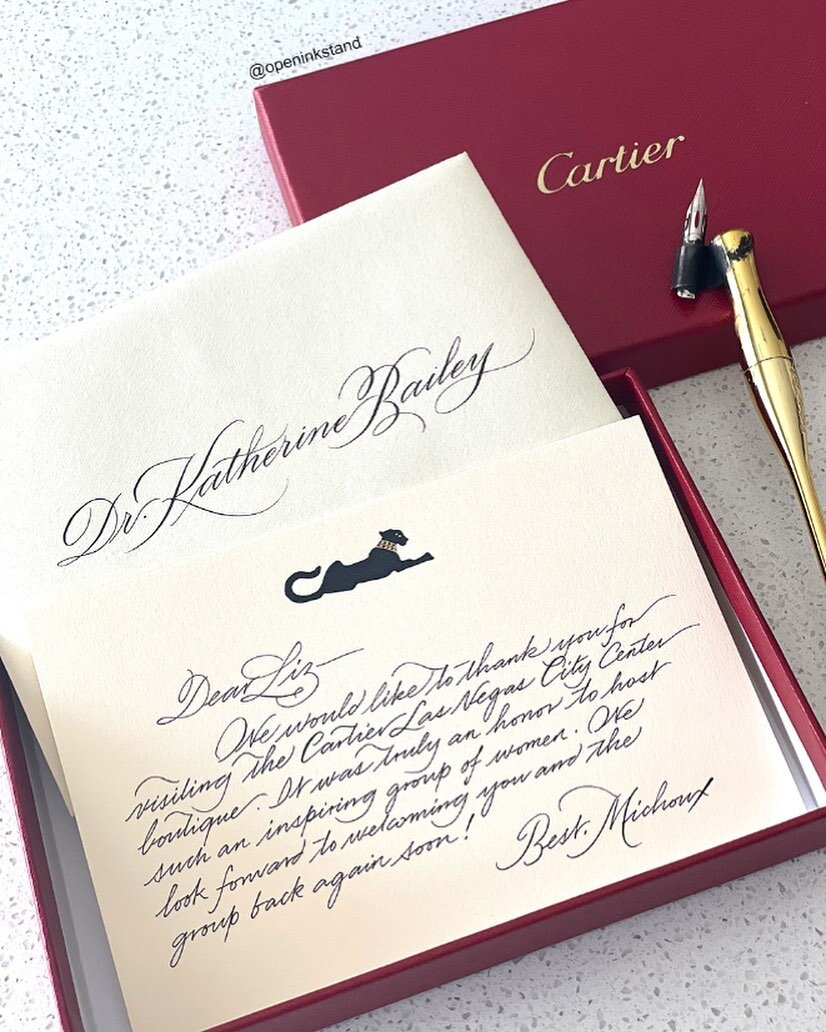 @openinkstand
Cartier
Dr. Katherine Bailey
Dear Liz
We would like to thank you for
visiting the Cartier Las Vegas City Center
boutique. It was truly an honor to host
such an inspiring group of women. We
look forward to welcoming you and the
group back again soon!
Best, Michoux